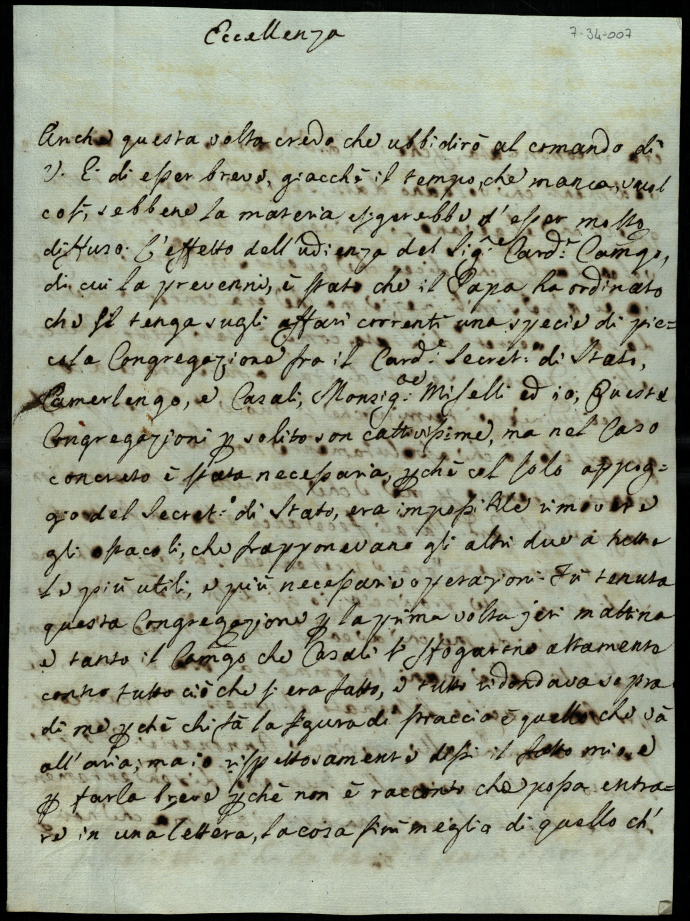 7-34-007
Eccellenza
Anche questa volta credo che ubbidirò al comando di
V. E. di esser breve, giacchè il tempo, che manca, vuol
così, sebbene la materia esigerebbe d'esser molto
diffuso. L'effetto dell'udienza del Sig.r Card.e Camgo,
di cui la prevenni, è stato che il Papa ha ordinato
che si tenga sugli affari correnti una specie di pic=
cola Congregazione fra il Card.e Secret.o di Stato,
Camerlengo, e Casali, Monsig.re Miselli ed io, Queste
Congregazioni p solito son cattivissime, ma nel Caso
concreto è stata necessaria, pchè col solo appog=
gio del Secret.o di Stato, era impossibile rimovere
gli ostacoli, che frapponevano gli altri due a tutte
le più utili, e più necessarie operazioni. Fù tenuta
questa Congregazione p la prima volta jeri mattina
e tanto il Camgo che Casali si sfogarono altamente
contro tutto ciò che si era fatto, e tutto ridondava sopra
di me pchè chi fà la figura di straccia è quello che và
all'aria; ma io rispettosamente dissi il fatto mio, e
p farla breve pchè non è racconto che possa entra=
re in una lettera, la cosa finì meglio di quello ch'